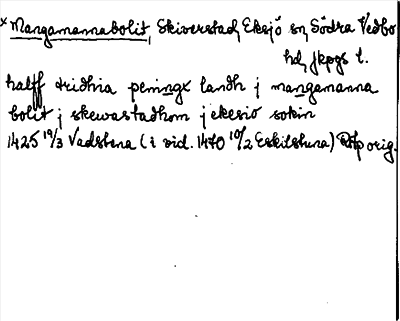 x Mangamannabolit, Skiverstad, Eksjö sn, Södra Vedbo
hd, Jkpgs l.
halff tridhia peningx landh j mangamanna
bolit j skewastadhom j ekesiö sokin
1425 19/3 Vadstena (i vid. 1470 10/2 Eskilstuna) RAp orig.